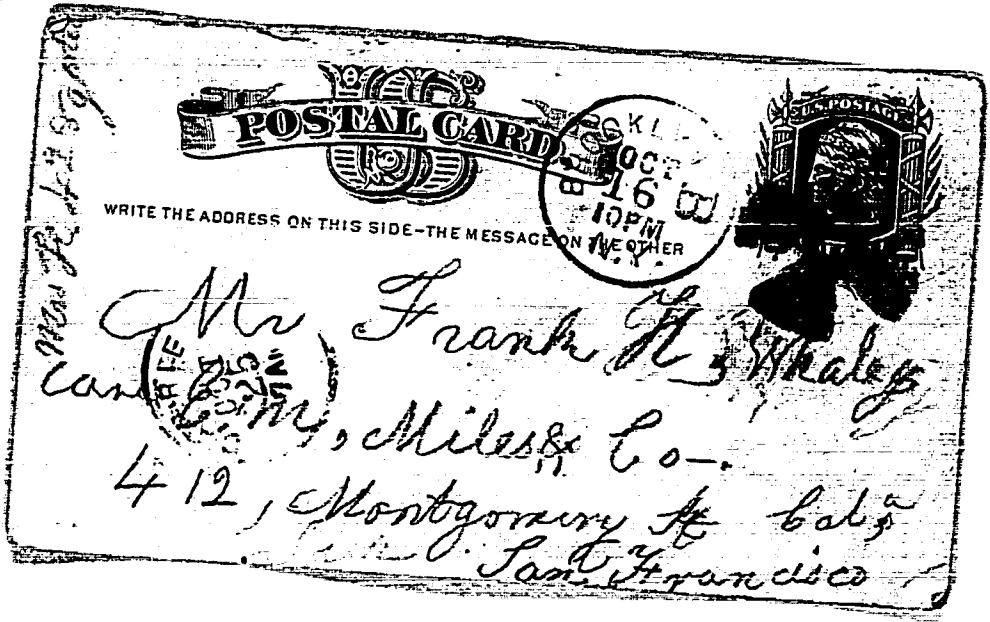 POSTAL CARD
U.S. POSTAGE
BROOKLYN
OCT
16
10PM
N.Y.
8
WRITE THE ADDRESS ON THIS SIDE-THE MESSAGE ON THE OTHER
Mr Frank H, Whaley
care C. M, Miles & Co-.
412, Montgomery St Cala
San Francisco